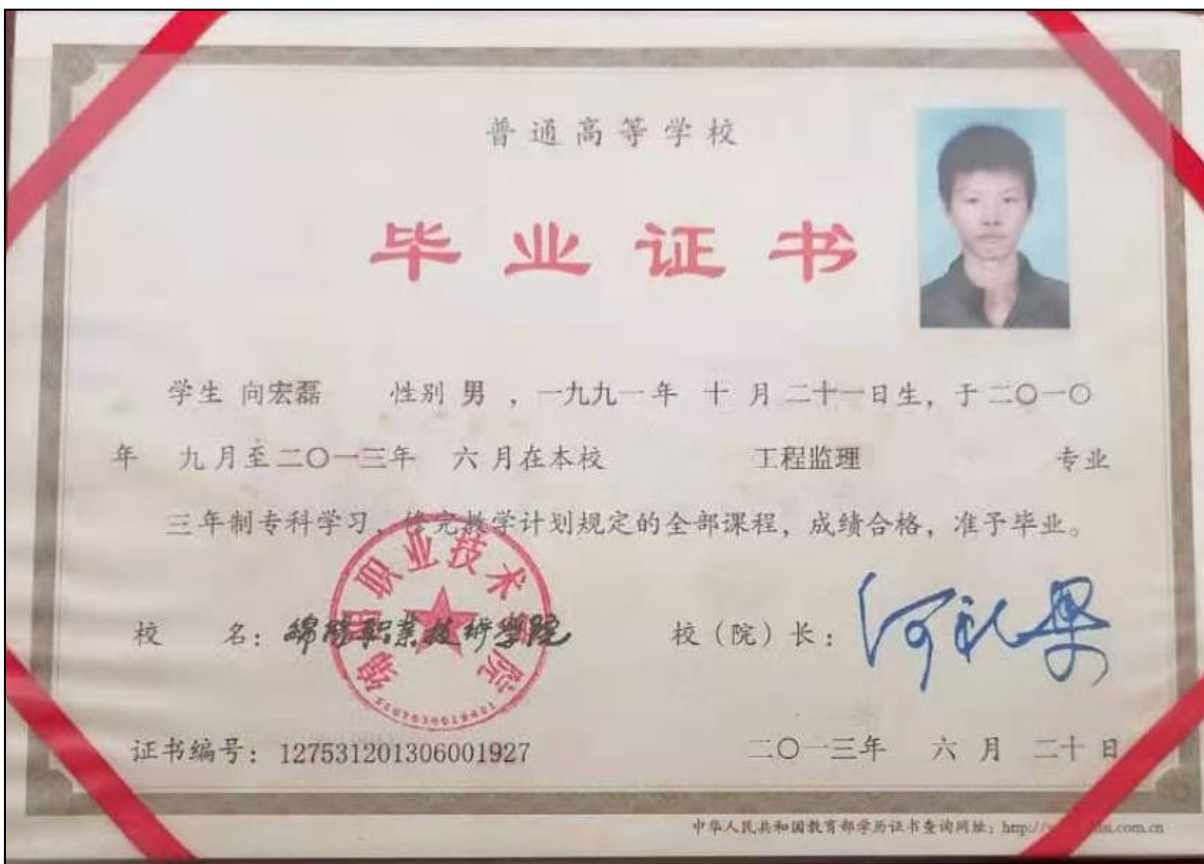 普通高等学校
毕业证书
学生 向宏磊 性别 男 ，一九九一年 十 月 二十一日生，于二〇一〇
年 九月至二〇一三年 六月在本校 工程监理 专业
三年制专科学习，修完教学计划规定的全部课程，成绩合格，准予毕业。
校 名：绵阳职业技术学院 校（院）长：
绵阳职业技术学院
证书编号：127531201306001927 二〇一三年 六月 二十日
中华人民共和国教育部学历证书查询网址：http://